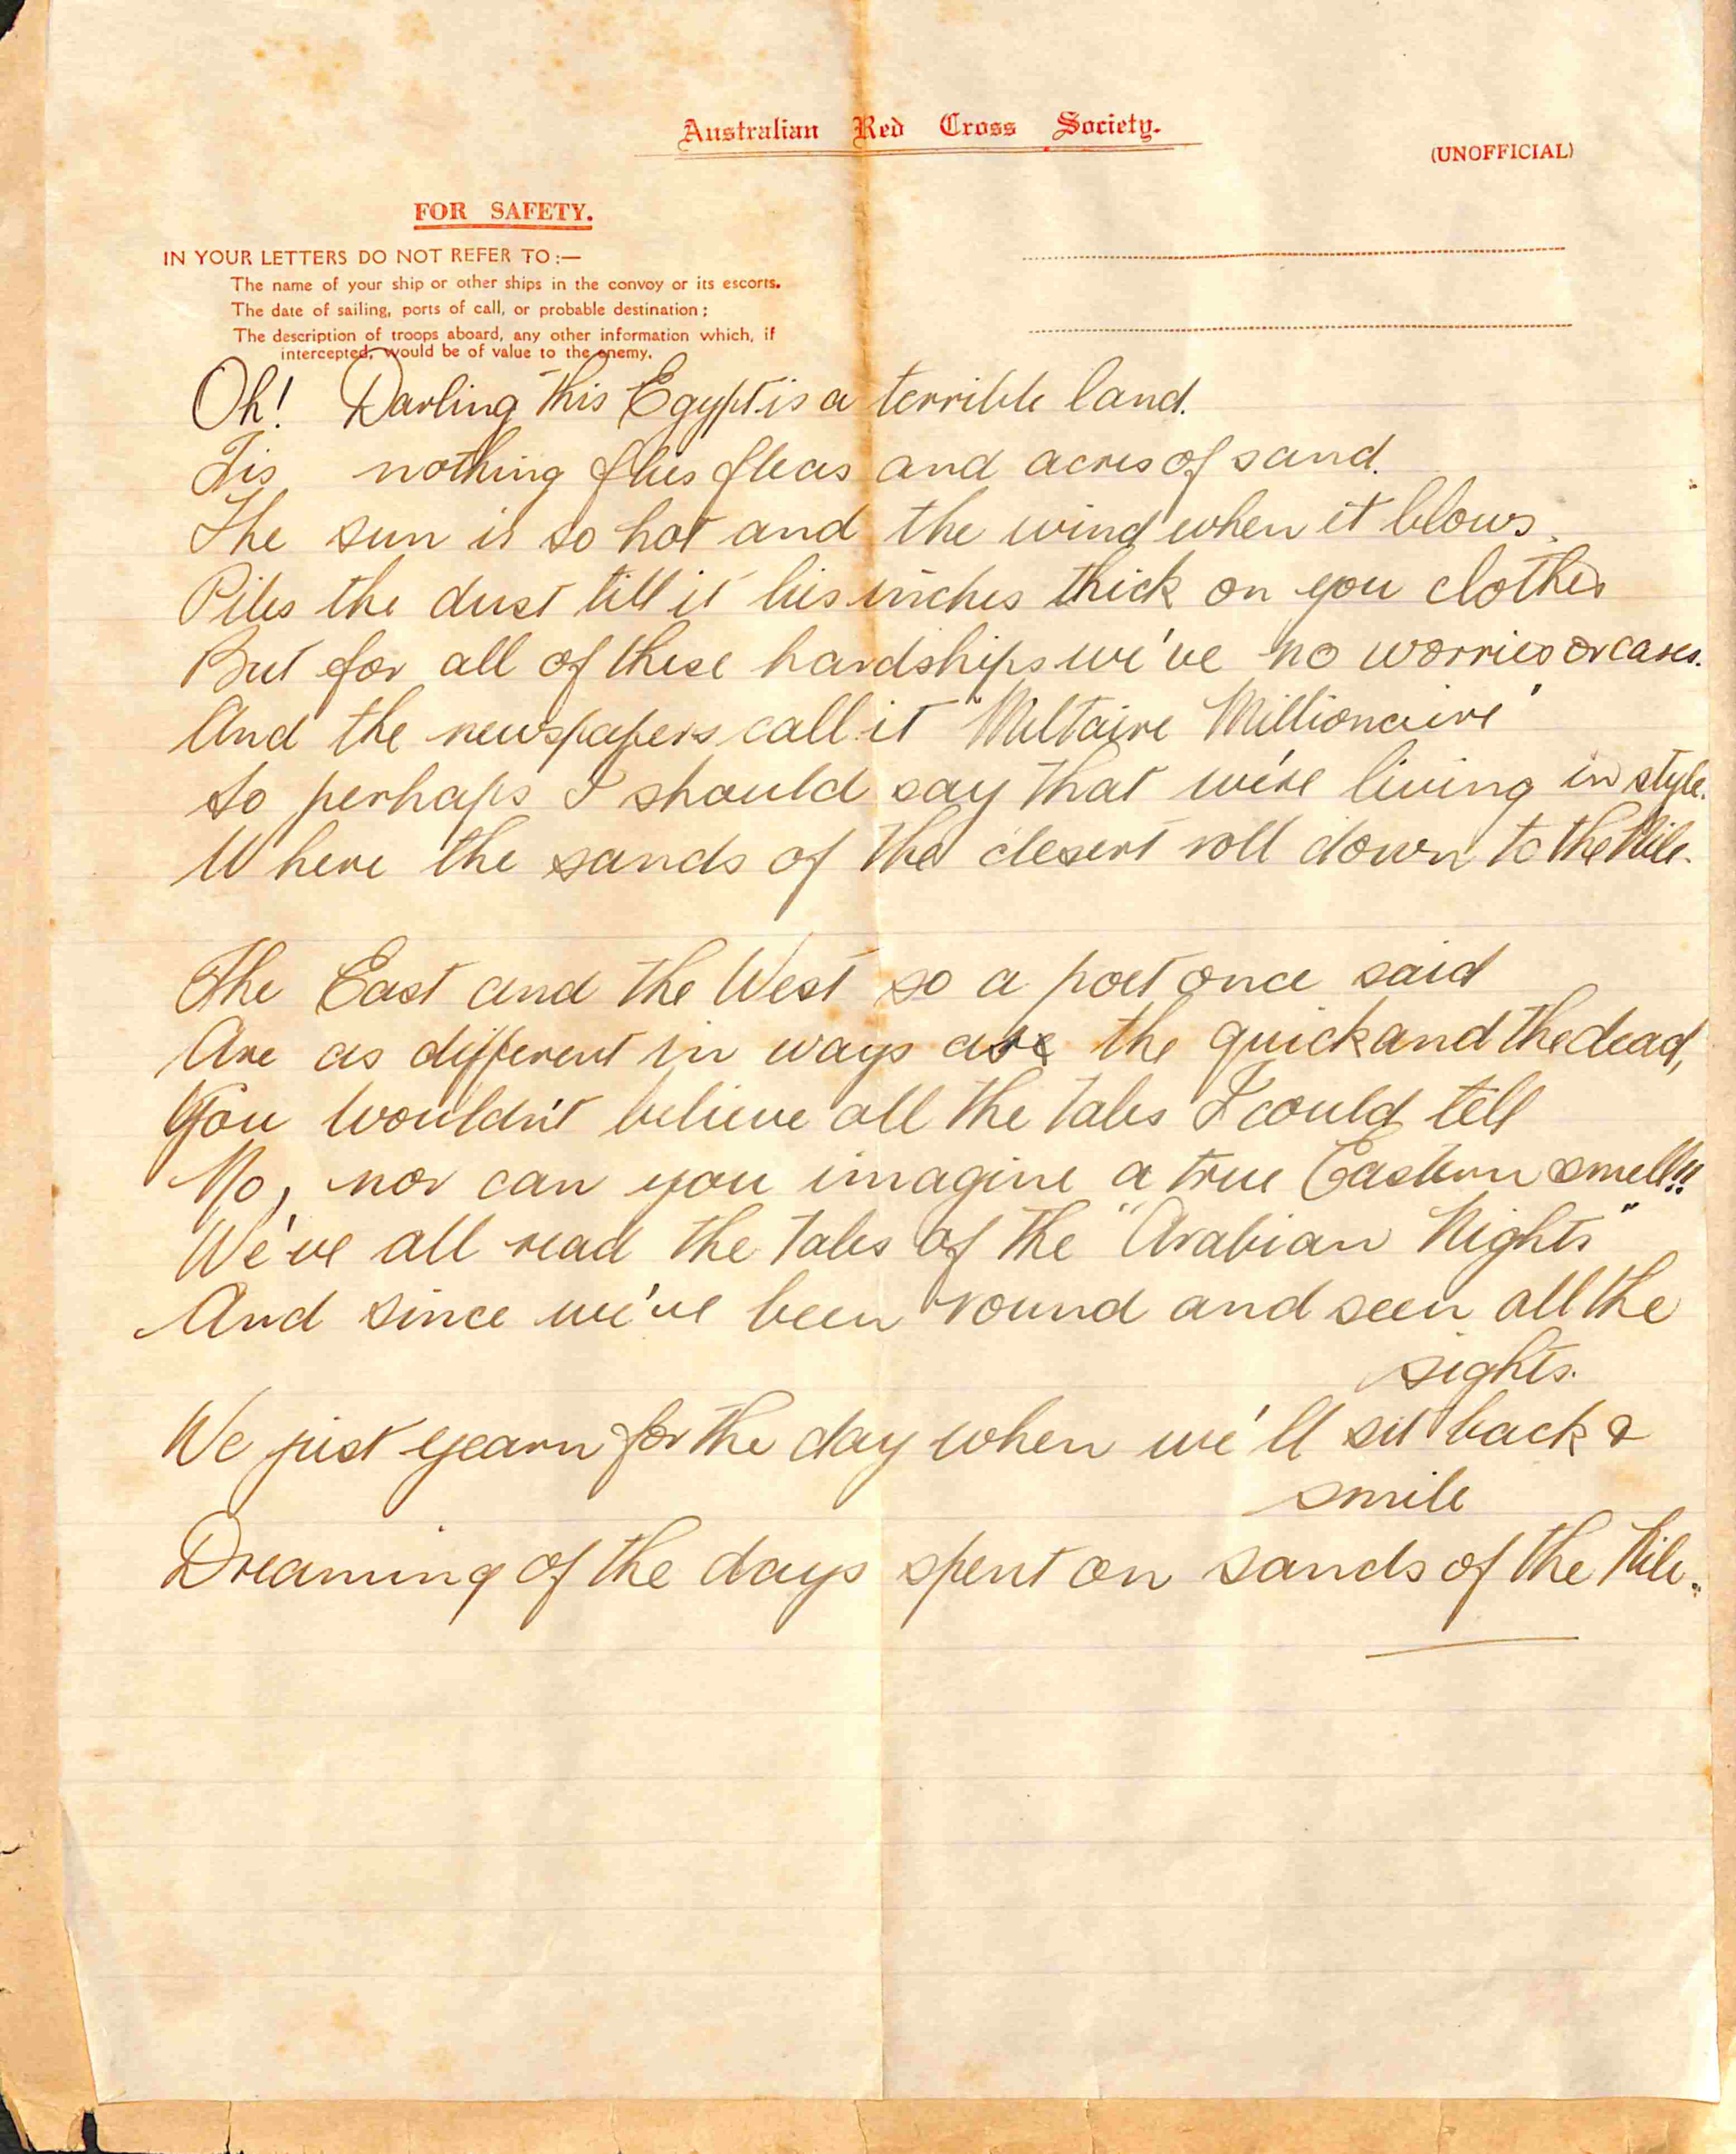 Australian Red Cross Society.
(UNOFFICIAL)
FOR SAFETY.
IN YOUR LETTERS DO NOT REFER TO :—
The name of your ship or other ships in the convoy or its escorts.
The date of sailing, ports of call, or probable destination ;
The description of troops aboard, any other information which, if
intercepted, would be of value to the enemy.
Oh! Darling this Egypt is a terrible land.
Tis nothing flies fleas and acres of sand.
The sun is so hot and the wind when it blows.
Piles the dust till it lies inches thick on you clothes
But for all of these hardships we've no worries or cares.
And the newspapers call it "Miltaire Millionaire"
So perhaps I should say that we're living in style.
Where the sands of the desert roll down to the Nile.
The East and the West so a poet once said
Are as different in ways as the quick and the dead,
You wouldn't believe all the tales I could tell
No, nor can you imagine a true Eastern smell!!
We've all read the tales of the "Arabian Nights"
And since we've been round and seen all the
sights.
We just yearn for the day when we'll sit back &
smile
Dreaming of the days spent on sands of the Nile.